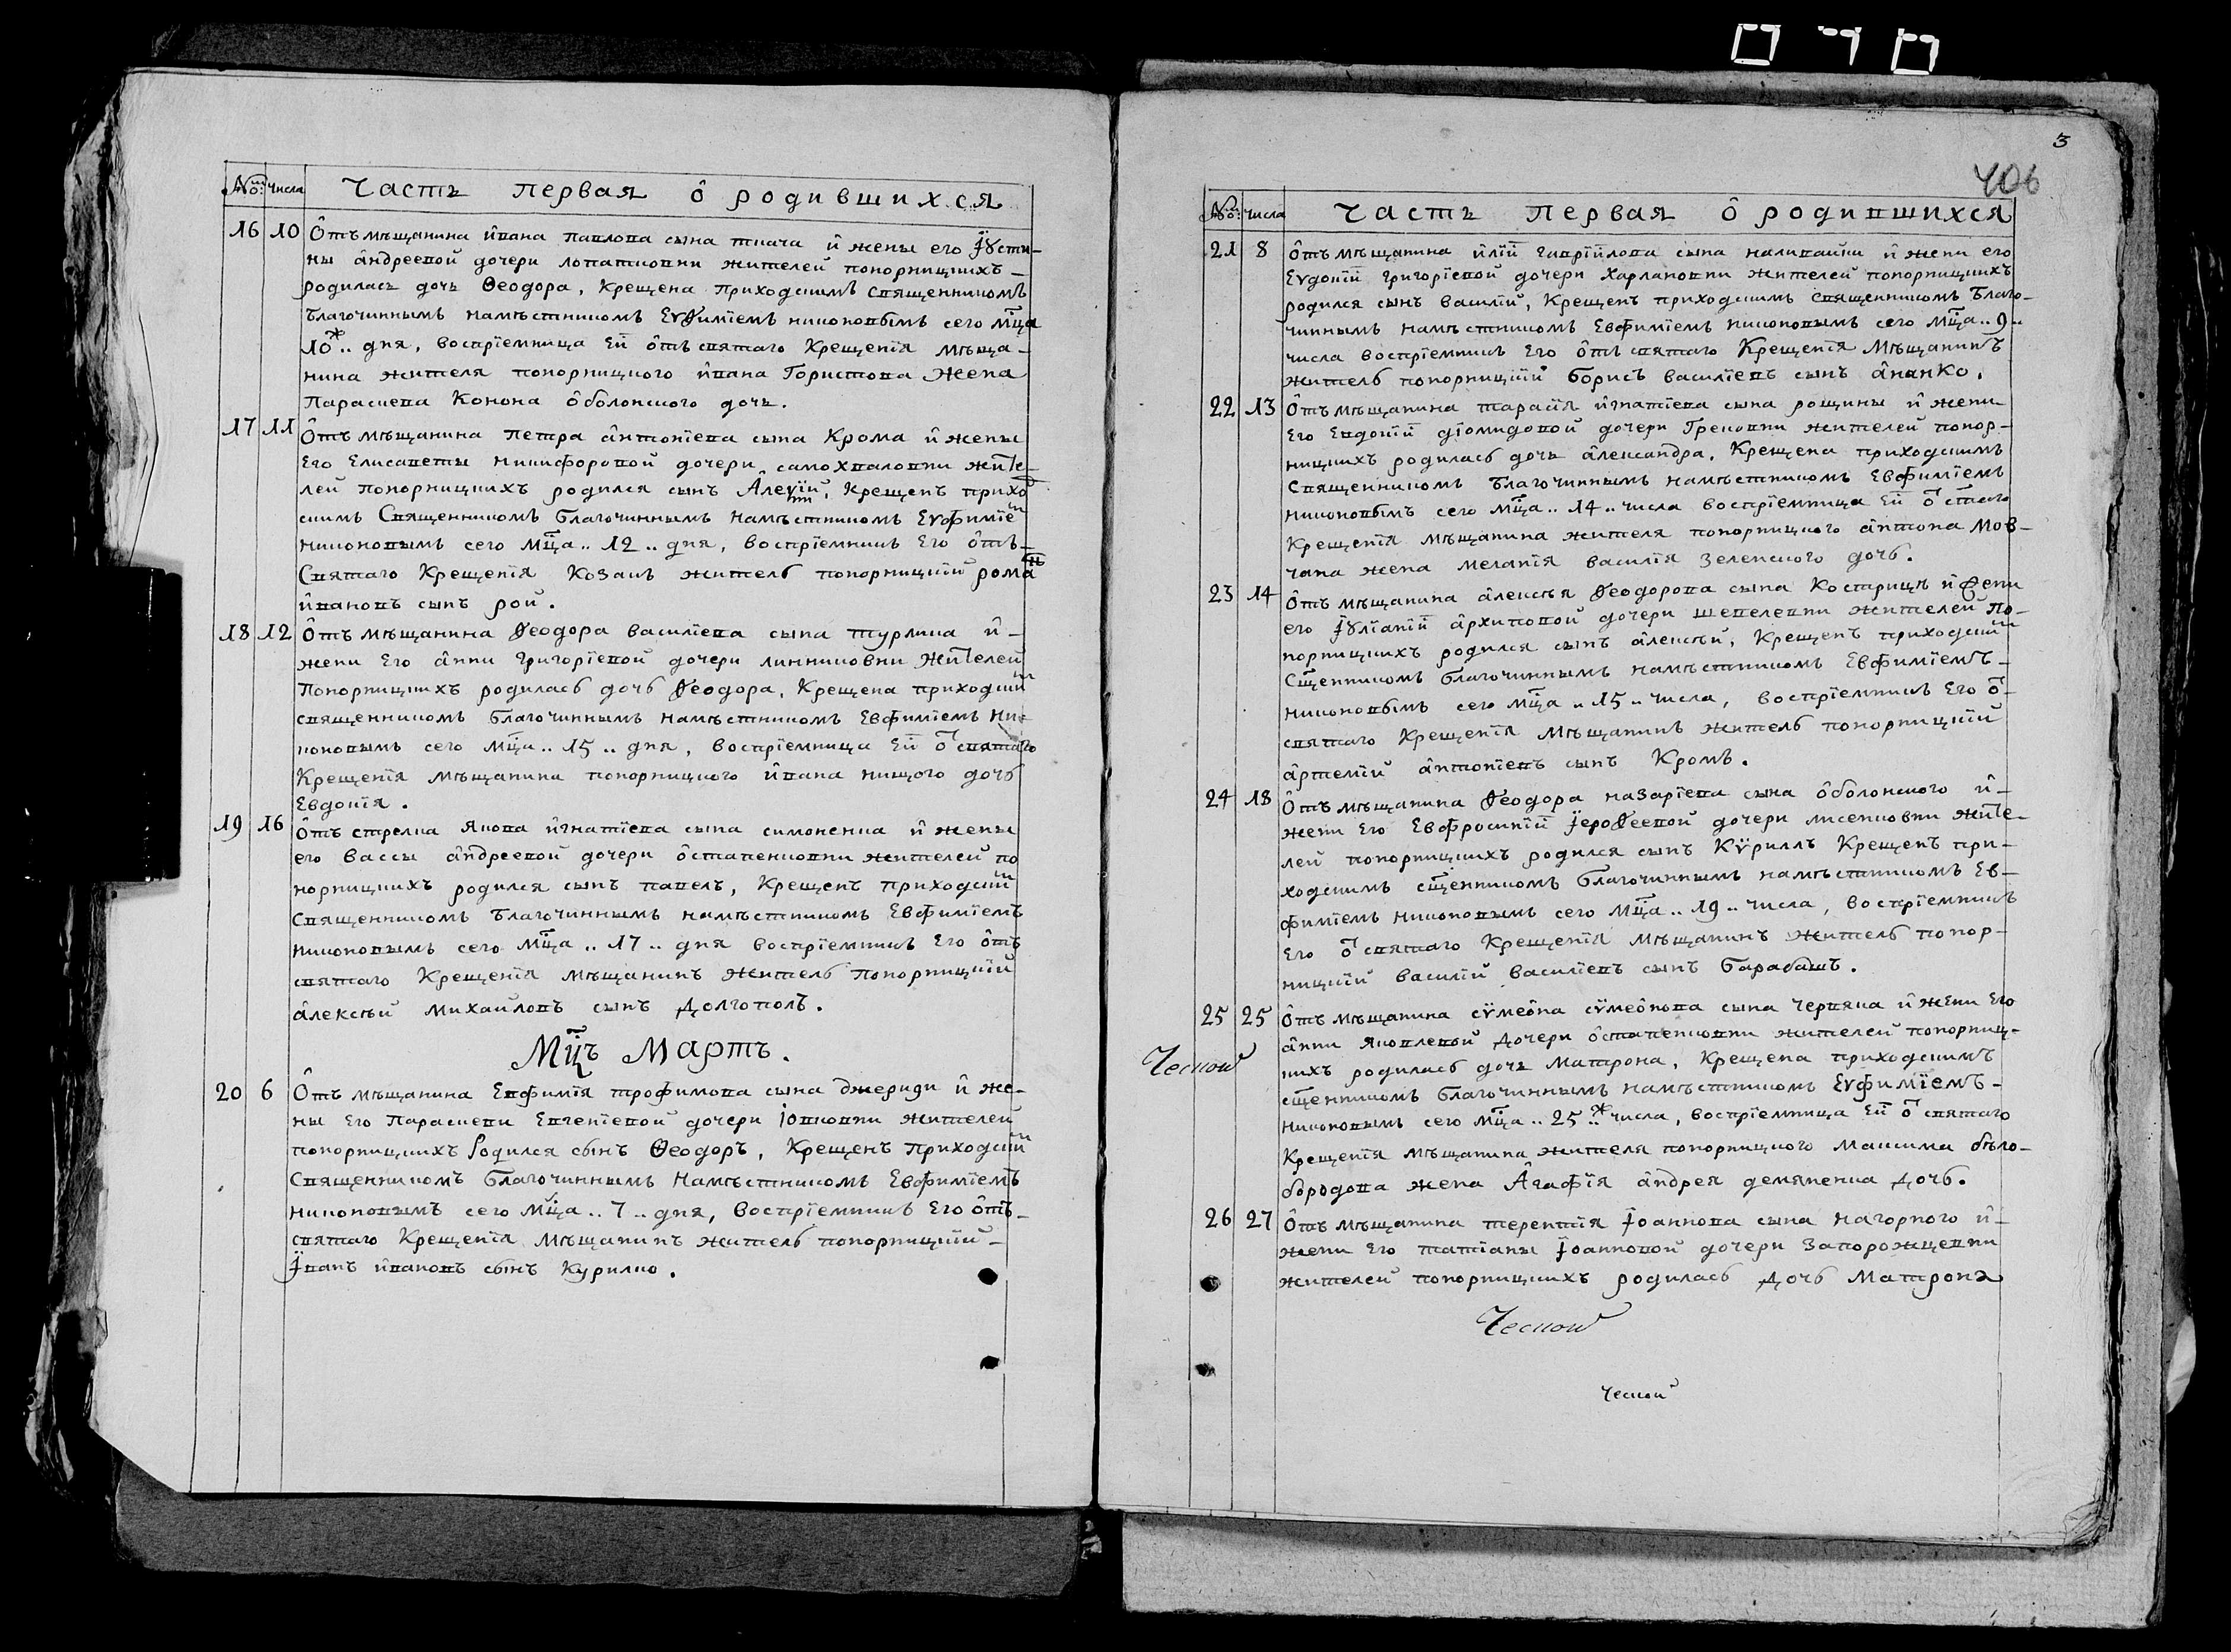 № числа Часть первая о родившихся
16 10 Отъ мѣщанина ивана павлова сына ткача и жены его Іусти-
ны андреевой дочери лопатковни жителей понорницкихъ -
родилась дочь Ѳеодора, Крещена приходскимъ священникомъ
благочиннымъ намѣстникомъ Еѵѳиміемъ никоновымъ сего мца
10 .. дня, воспріемница Ей отъ святаго Крещенія мѣща-
нина жителя понорницкого ивана Гористова жена
Параскева Конона оболонского дочь.
17 11 Отъ мѣщанина Петра антоніева сына Крома и жены
Его Елисаветы никифоровой дочери самохваловни жите-
лей понорницкихъ родился сынъ Алеѵій, Крещенъ прихо
скимъ Священникомъ благочиннымъ намѣстникомъ Еѵфиміем
никоновымъ сего мца .. 12 .. дня, воспріемникъ Его отъ -
Святаго Крещенія Козакъ житель понорницкій роман
ивановъ сынъ рой.
18 12 Отъ мѣщанина Ѳеодора василіева сына турлика и -
жени Его анни григоріевой дочери линниковни жителей
Понорницкихъ родилась дочь Ѳеодора, Крещена приходским
священникомъ благочиннымъ намѣстникомъ Евфиміемъ ни-
коновымъ сего мца .. 15 .. дня, воспріемница Ей от святаго
Крещенія мѣщанина понорницкого ивана нищого дочь
Евдокія.
19 16 Отъ стрелка якова игнатіева сына симоненка и жены
его вассы андреевой дочери остапенковни жителей по
норницкихъ родился сынъ павелъ, Крещенъ приходским
Священникомъ благочиннымъ намѣстникомъ Евфиміемъ
никоновымъ сего мца .. 17 .. дня воспріемникъ Его отъ
святаго Крещенія мѣщанинъ житель понорницкій
алексѣй михайловъ сынъ долгополъ.
Мцъ Мартъ.
20 6 Отъ мѣщанина Евфимія трофимова сына джериди и же-
ны Его Параскеви Евгеніевой дочери Юшковни жителей
понорницкихъ Родился сынъ Ѳеодоръ, Крещенъ Приходским
Священникомъ благочиннымъ намѣстникомъ Евфиміемъ
никоновымъ сего мца .. 7 .. дня, воспріемникъ Его отъ -
святаго Крещенія мѣщанинъ житель понорницкій -
Іванъ ивановъ сынъ Курилко.
3
406
№ числа Часть первая о родившихся
21 8 Отъ мѣщанина иліи гавріилова сына наливайки и жени его
Еѵдокіи григоріевой дочери харлановни жителей понорницкихъ
родился сынъ василій, Крещенъ приходскимъ священникомъ благо-
чиннымъ намѣстникомъ Евфиміемъ никоновымъ сего мца .. 9 ..
числа воспріемникъ Его отъ святаго Крещенія мѣщанинъ
житель понорницкій борисъ василіевъ сынъ ананко.
22 13 Отъ мѣщанина тарасія игнатіева сына рощины и жени
Его Евдокіи діомидовой дочери Грековни жителей понор-
ницкихъ родилась дочь александра, Крещена приходскимъ
Священникомъ благочиннымъ намѣстникомъ Евфиміемъ
никоновымъ сего мца .. 14 .. числа воспріемница Ей от стаго
Крещенія мѣщанина жителя понорницкого антона мов-
чана жена меланія василія зеленского дочь.
23 14 Отъ мѣщанина алексѣя Ѳеодорова сына кострицѣ и жени
его Іуліаніи архиповой дочери шепелевни жителей по-
норницкихъ родился сынъ алексѣй, Крещенъ приходским
Сщенникомъ благочиннымъ намѣстникомъ Евфиміемъ -
никоновымъ сего мца .. 15 .. числа, воспріемникъ Его от -
святаго Крещенія мѣщанинъ житель понорницкій
артемій антоніевъ сынъ Кромъ.
24 18 Отъ мѣщанина Ѳеодора назаріева сына оболонского и -
жени Его Евфросиніи Іероѳеевой дочери лисенковни жите-
лей понорницкихъ родился сынъ Кѵриллъ Крещенъ при-
ходскимъ сщенникомъ благочиннымъ намѣстникомъ Ев-
фиміемъ никоновымъ сего мца .. 19 .. числа, воспріемникъ
Его от святаго Крещенія мѣщанинъ житель понор-
ницкій василій василіевъ сынъ барабашъ.
25 25 Отъ мѣщанина сѵмеона сѵмеонова сына черняка и жени Его
анни яковлевой дочери остапенковни жителей понорниц-
кихъ родилась дочь Матрона, Крещена приходскимъ
сщенникомъ благочиннымъ намѣстникомъ Еѵфиміемъ -
никоновымъ сего мца .. 25 .. числа, воспріемница Ей от святаго
Крещенія мѣщанина жителя понорницкого максима бѣло-
бородова жена Агафія андрея демяненка дочь.
26 27 Отъ мѣщанина терентія Іоаннова сына нагорного и -
жени Его татіаны Іоанновой дочери запорожцевни
жителей понорницкихъ родилась дочь Матрона